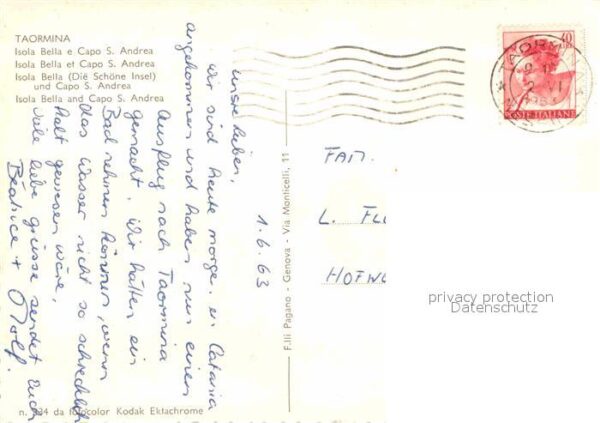 TAORMINA
Isola Bella e Capo S. Andrea
Isola Bella et Capo S. Andrea
Isola Bella (Die Schöne Insel)
und Capo S. Andrea
Isola Bella and Capo S. Andrea
Unsre lieben,
Wir sind heute morge. in Catania
angekommen und haben nun einen
Ausflug nach Taormina
gemacht. Wir hätten ein
Bad nehmen können, wenn
das Wasser nicht so schrecklich
kalt gewesen wäre.
Viele liebe grüsse sendet Euch
Béatrice + Rolf.
1.6.63
F.lli Pagano - Genova - Via Monticelli, 11
n. 234 da fotocolor Kodak Ektachrome
40
POSTE ITALIANE
TAORMINA
1963
FAM.
L.
HOFW
privacy protection
Datenschutz